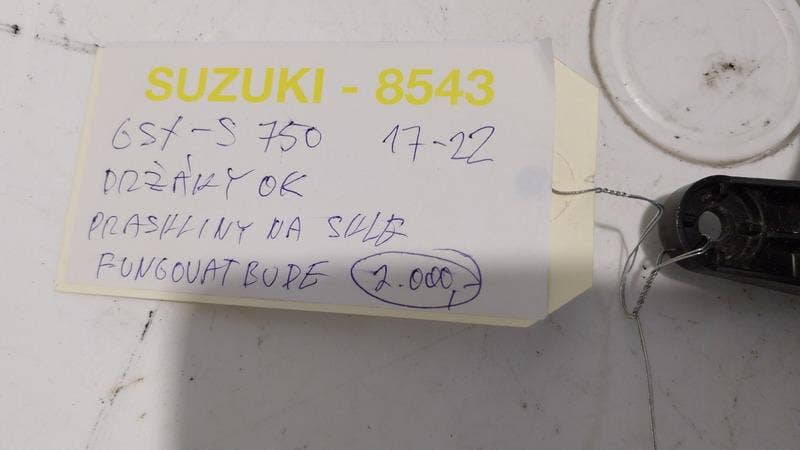 SUZUKI - 8543
GSX-S 750 17-22
DRŽÁKY OK
PRASKLINY NA SKLE
FUNGOVAT BUDE 2.000,-